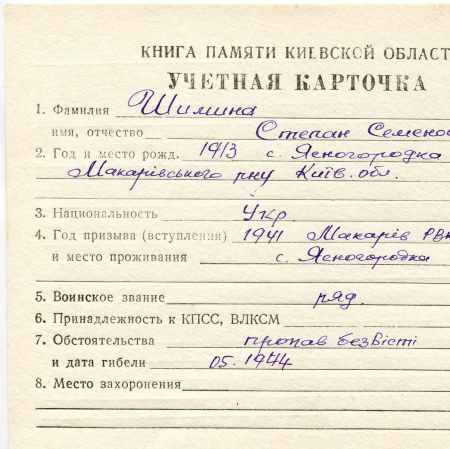 КНИГА ПАМЯТИ КИЕВСКОЙ ОБЛАСТ
УЧЕТНАЯ КАРТОЧКА
1. Фамилия Шимина
имя, отчество Степан Семено
2. Год и место рожд. 1913 с. Ясногородка
Макарівського р-ну Київ. обл.
3. Национальность Укр
4. Год призыва (вступления) 1941 Макарів РВК
и место проживания с. Ясногородка
5. Воинское звание ряд.
6. Принадлежность к КПСС, ВЛКСМ
7. Обстоятельства пропав безвісті
и дата гибели 05. 1944
8. Место захоронения